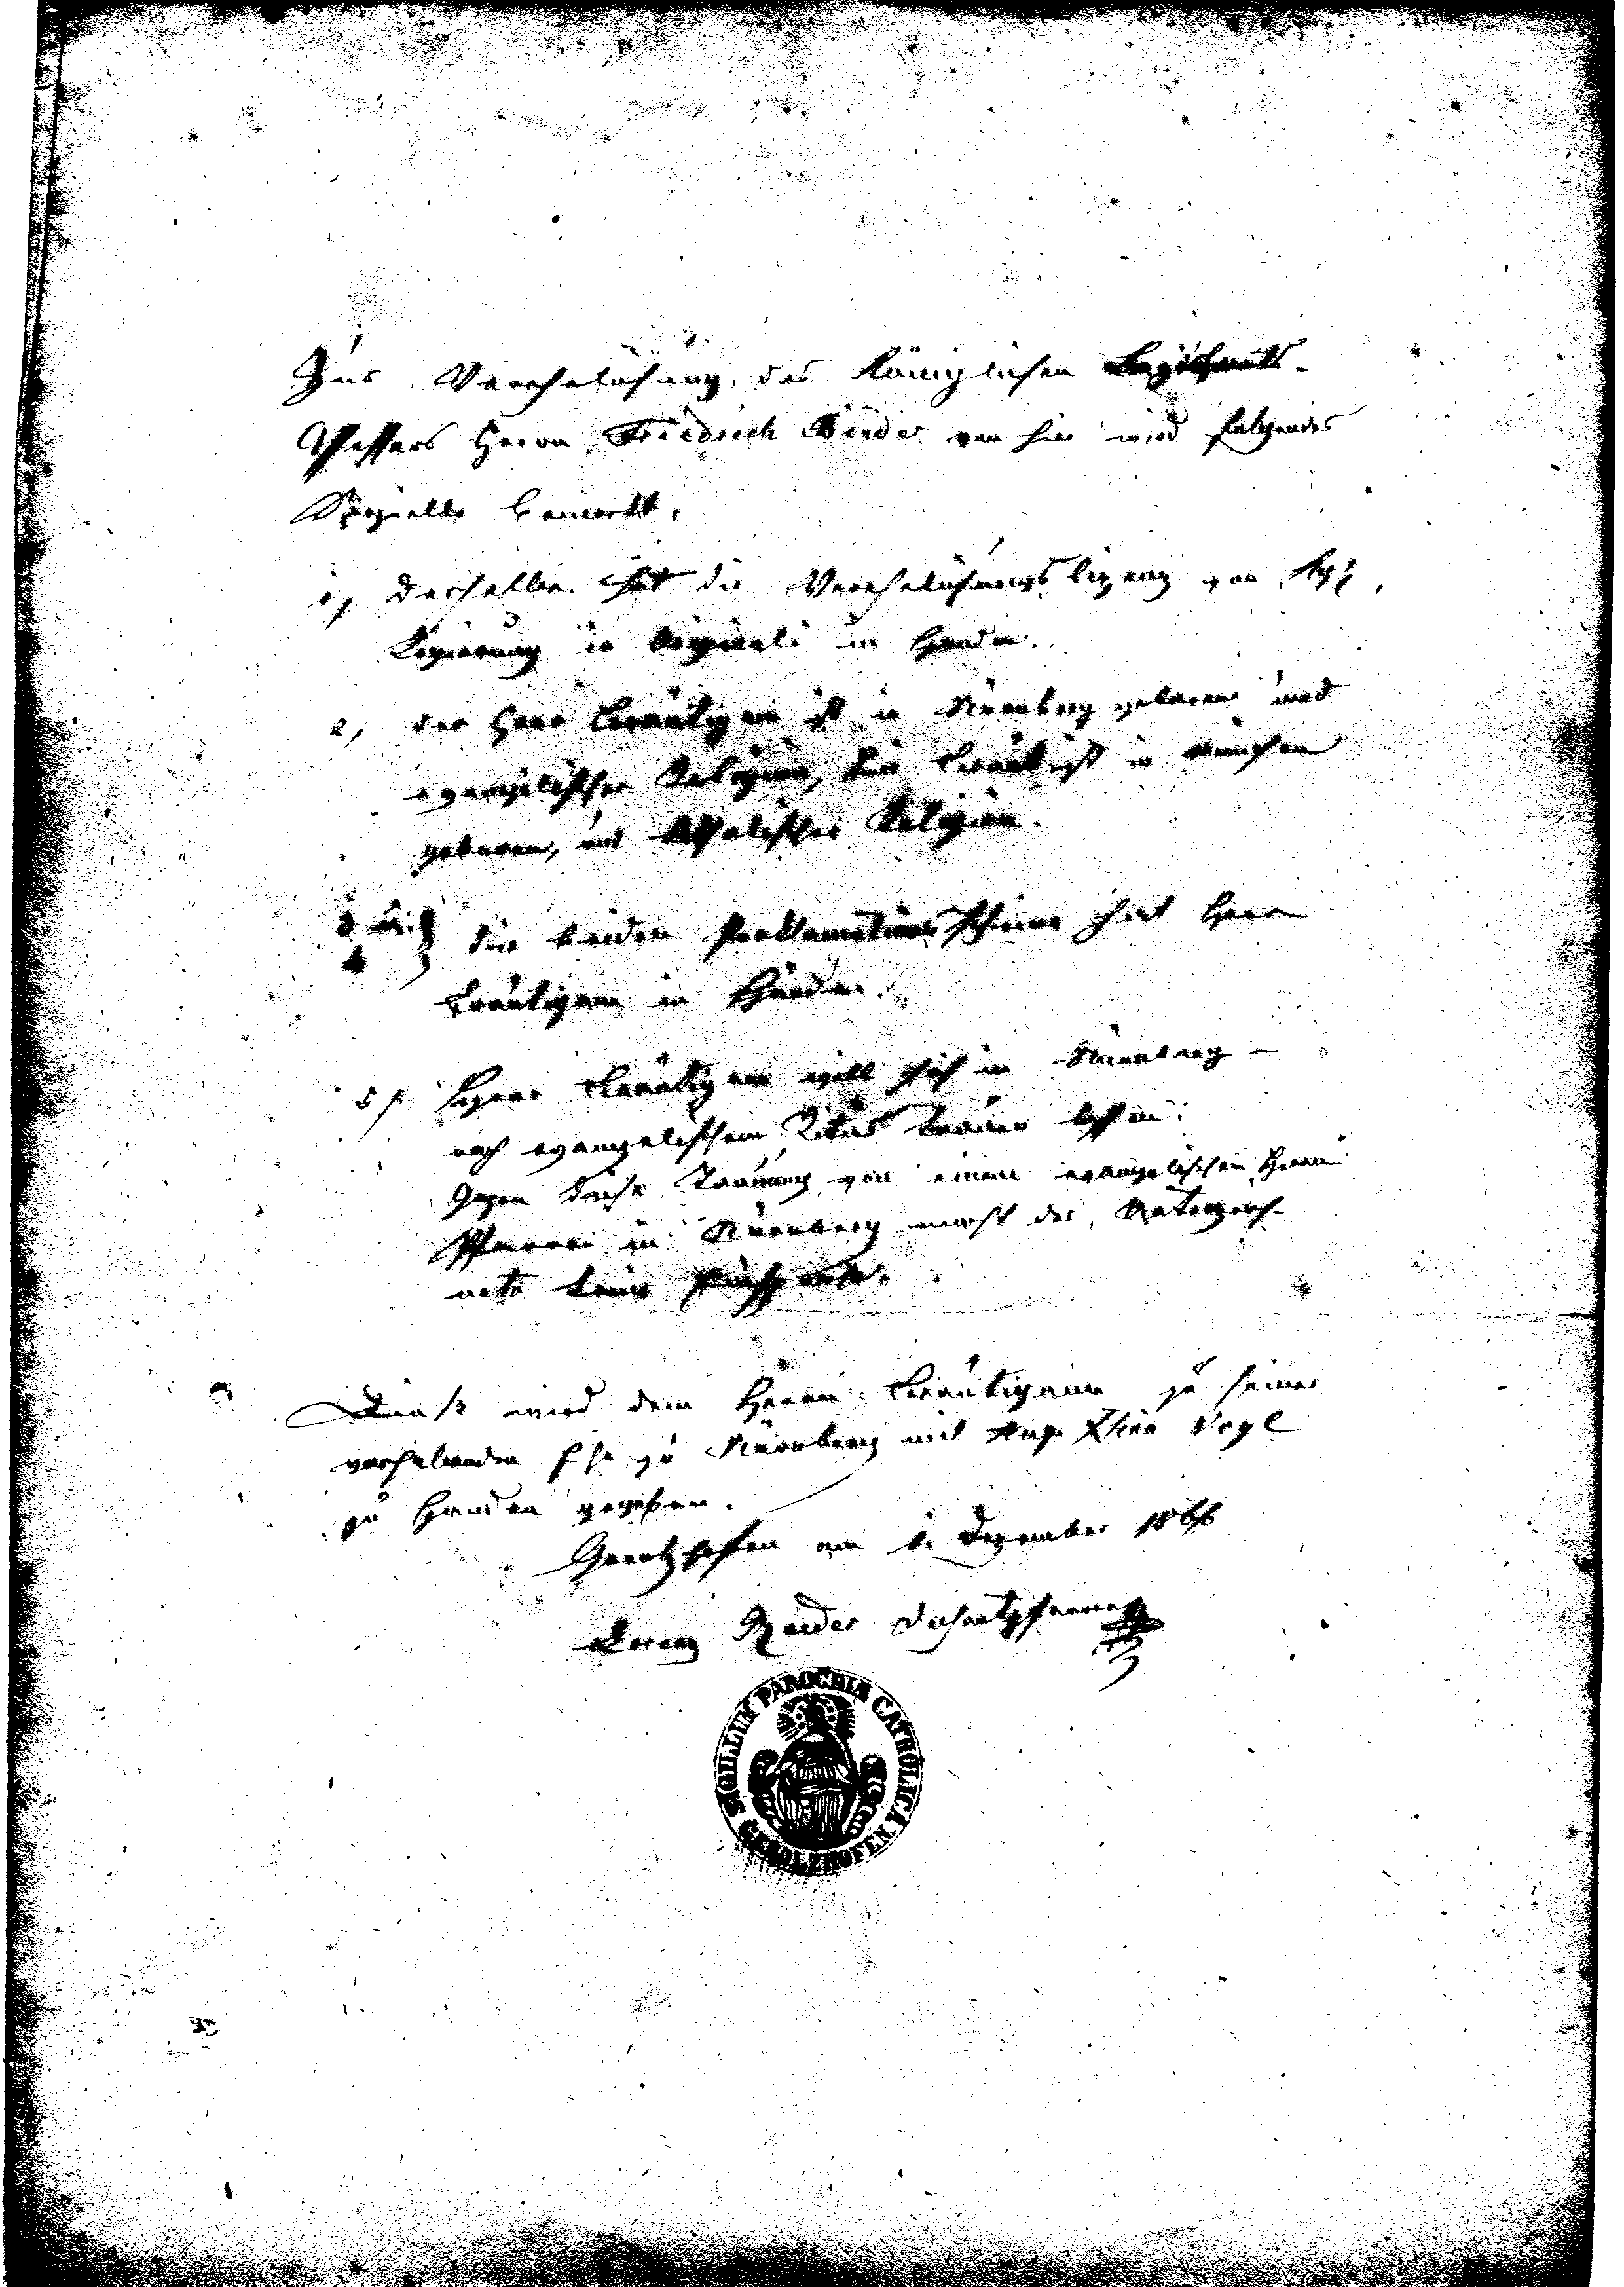 Zur Verehelichung des Königlichen Bezirksamts-
Assessors Herrn Friedrich Binder von hier wird folgendes
Spezielle bemerkt.
1, derselbe hat die Verehelichungslizenz von Kgl.
Regierung in Originali in Handen.
2, der Herr Bräutigam ist in Nürnberg geboren und
evangelischer Religion, die Braut ist in München
geboren, und katholischer Religion.
3 und
4 } die beiden Proklamationsscheine hat Herr
Bräutigam in Händen.
5, Herr Bräutigam will sich in Nürnberg -
nach evangelischem Ritus trauen lassen.
Gegen diese Trauung von einem evangelischen Herrn
Pfarrer in Nürnberg macht der Unterzeich-
nete keine Einsprache.
Dieß wird dem Herrn Bräutigam zu seiner
vorhabenden Ehe zu Nürnberg mit Vogl
zu Handen gegeben.
Gerolzhofen am 1. Dezember 186
Lorenz Dechantpfarrer
SIGILLUM PAROCHIÆ CATHOLICÆ
GEROLZHOFEN